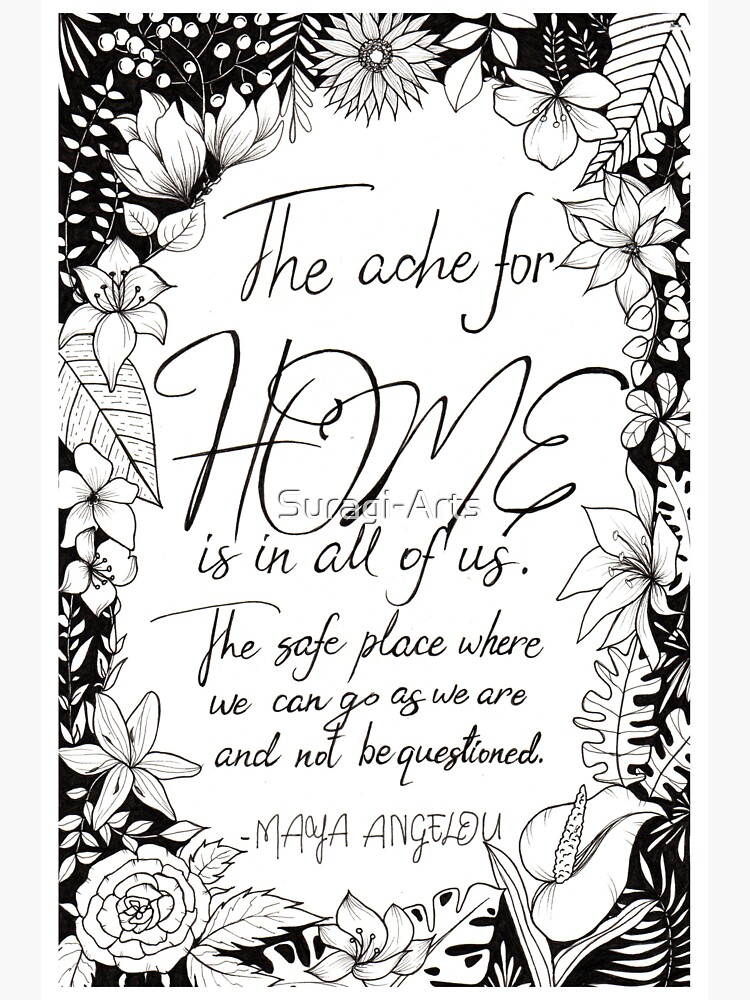 The ache for
HOME
Suragi-Arts
is in all of us.
The safe place where
we can go as we are
and not be questioned.
-MAYA ANGELOU